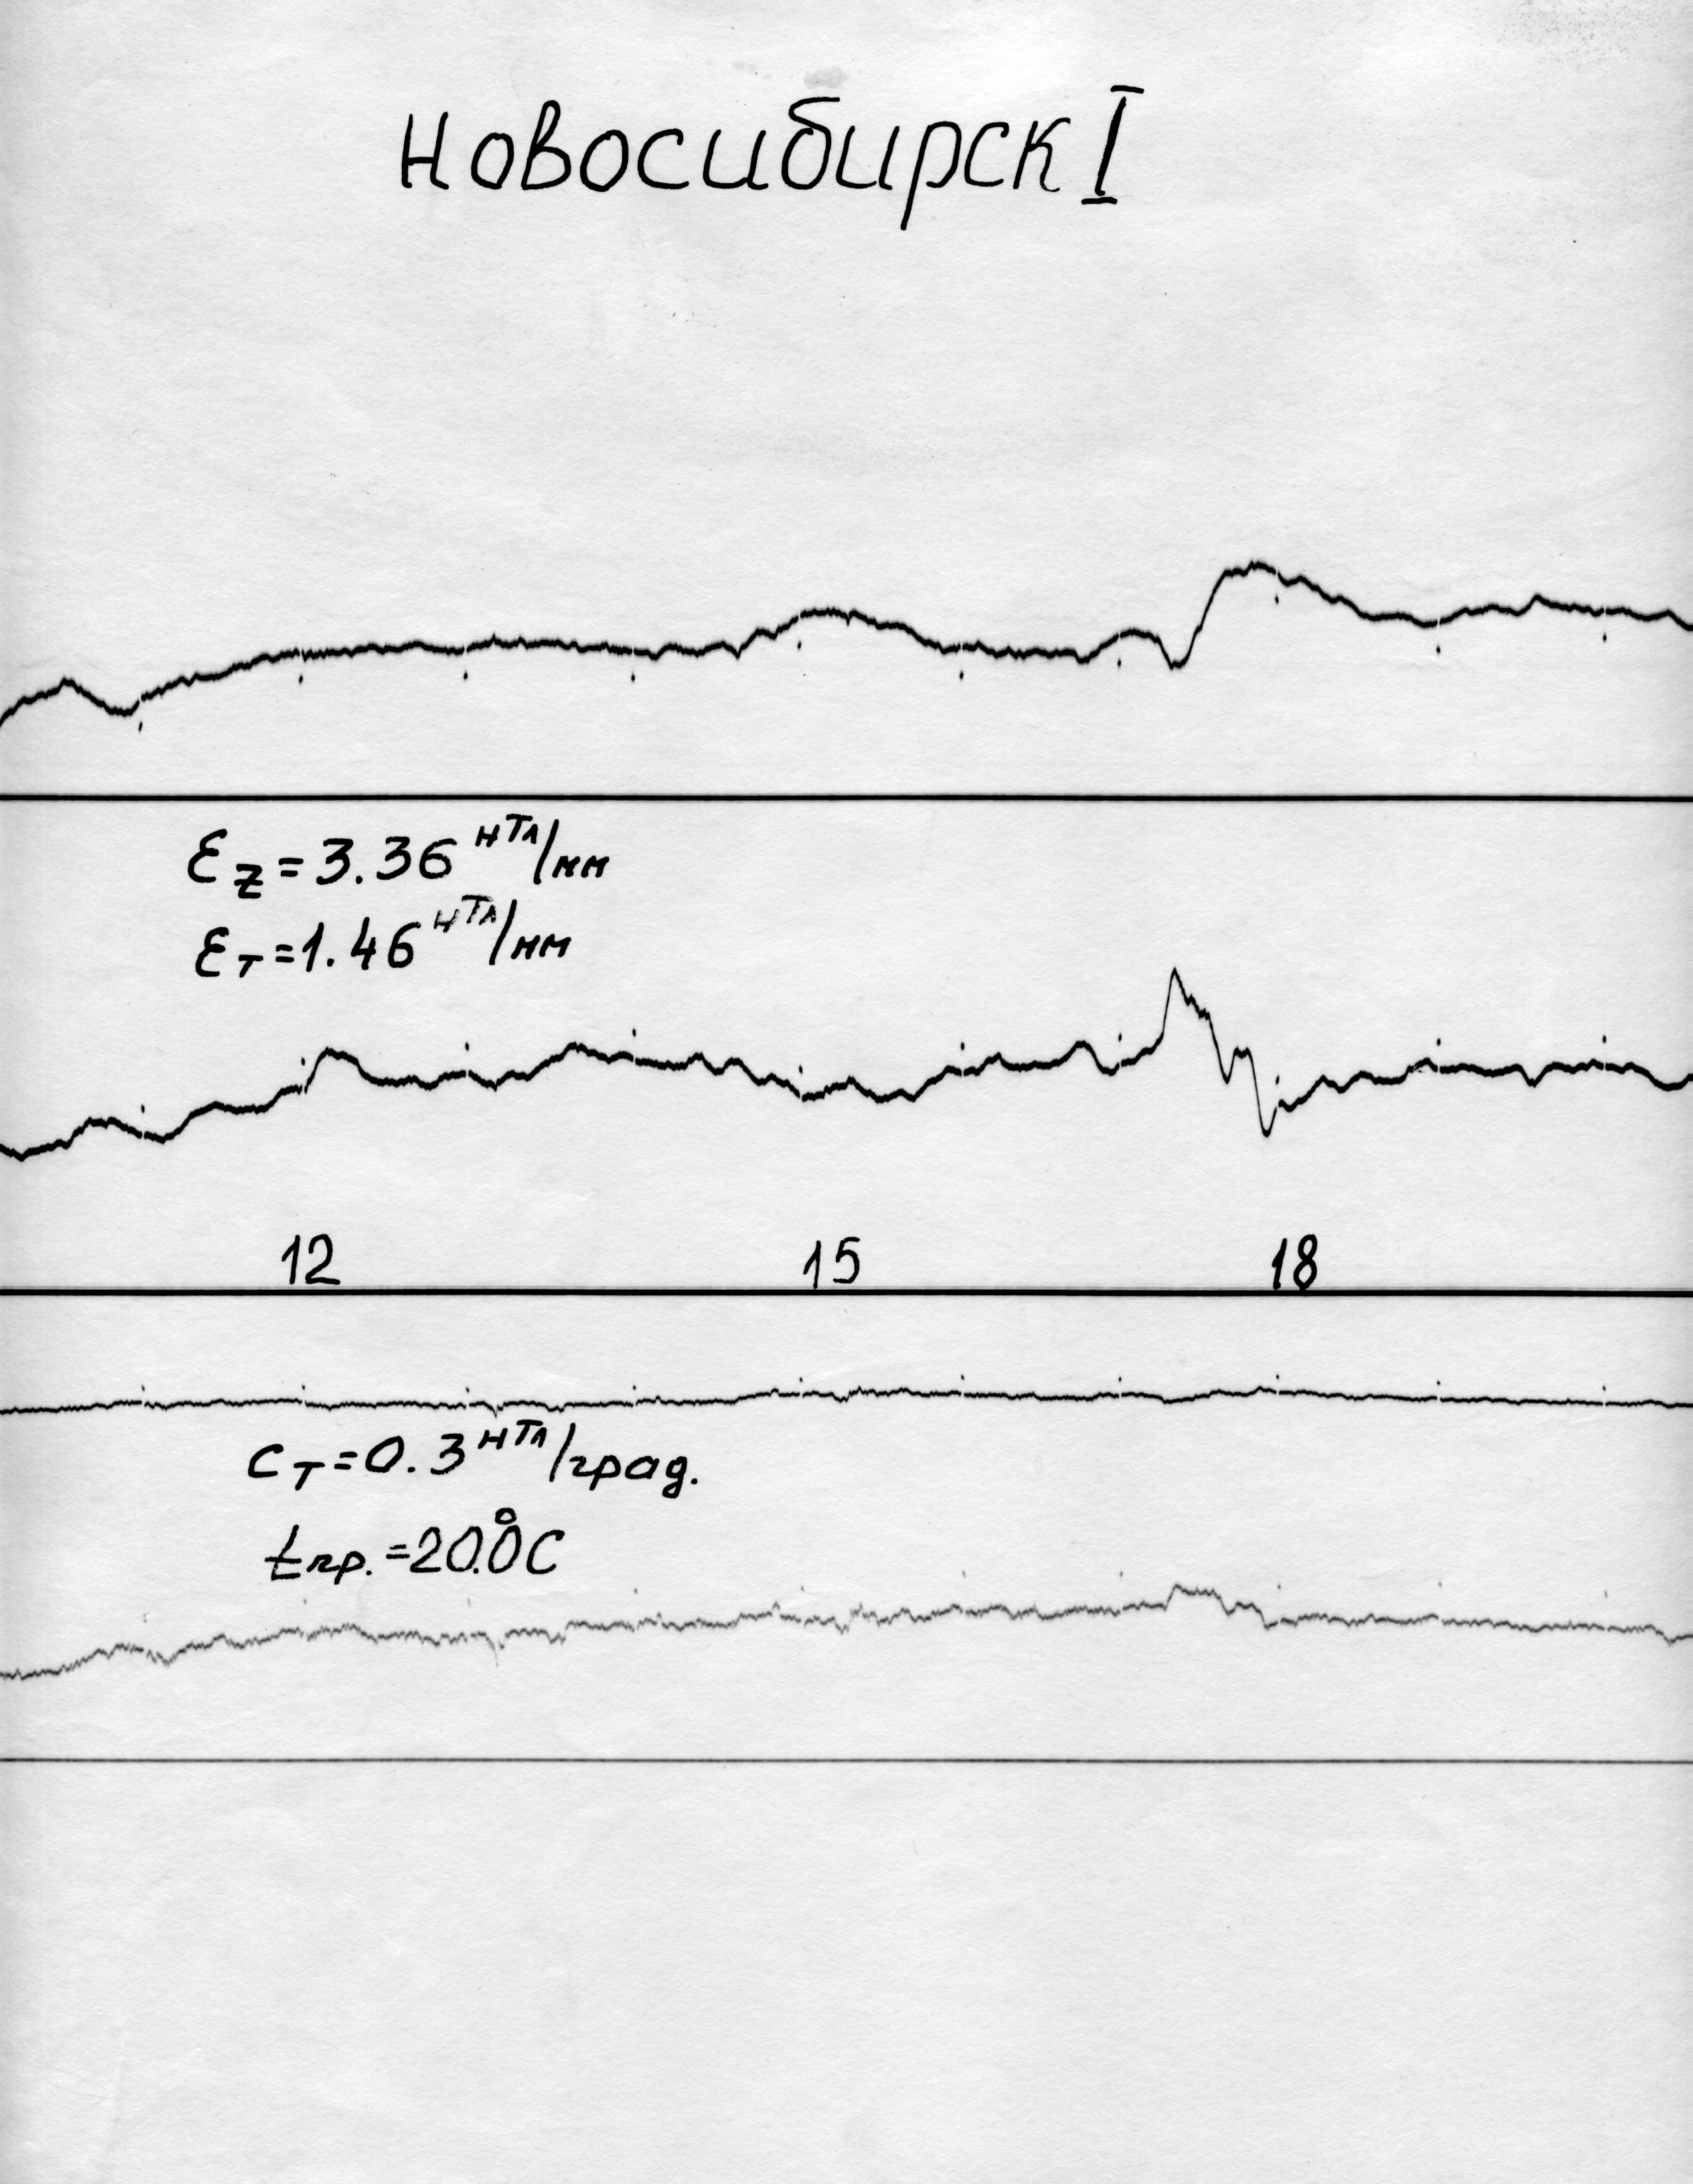 Новосибирск I
Ɛz = 3.36 нТл/мм
Ɛт = 1.46 нТл/мм
12 15 18
Cт = 0.3 нТл/град.
tгр. = 20.0°C